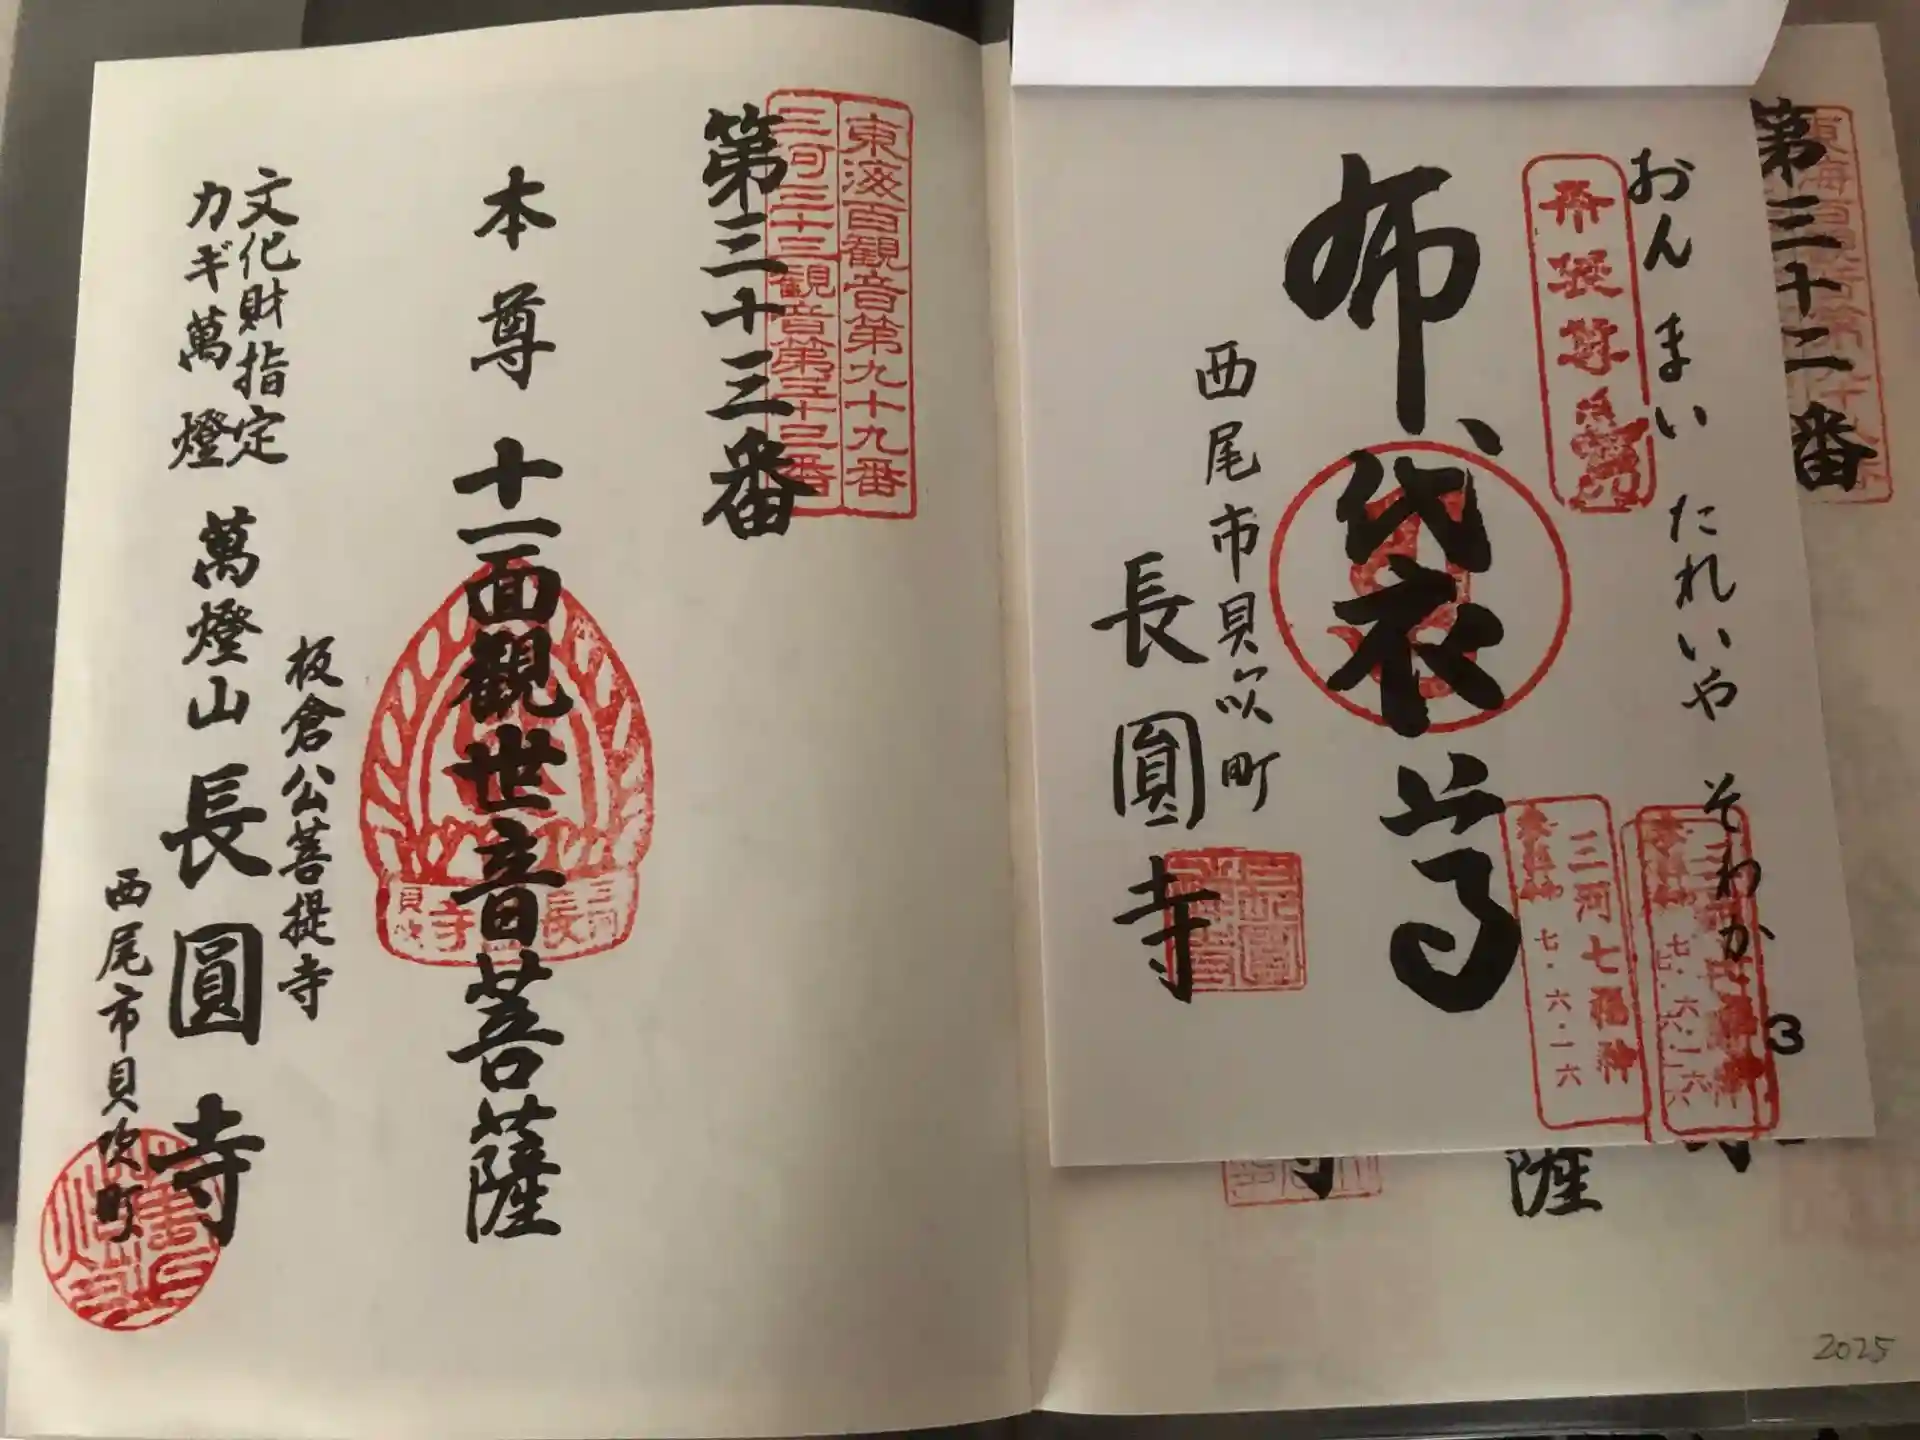 東海百観音第九十九番
三河三十三観音第三十三番
第三十三番
本尊 十一面觀世音菩薩
文化財指定
カギ萬燈
萬燈山 長圓寺
板倉公菩提寺
西尾市貝吹町
三河
長
寺
貝吹
第三十二番
おん まい たれいや そわか
布袋尊
布袋尊
西尾市貝吹町
長圓寺
三河七福神
七.六.十六
七.六.十六
3
薩
2025